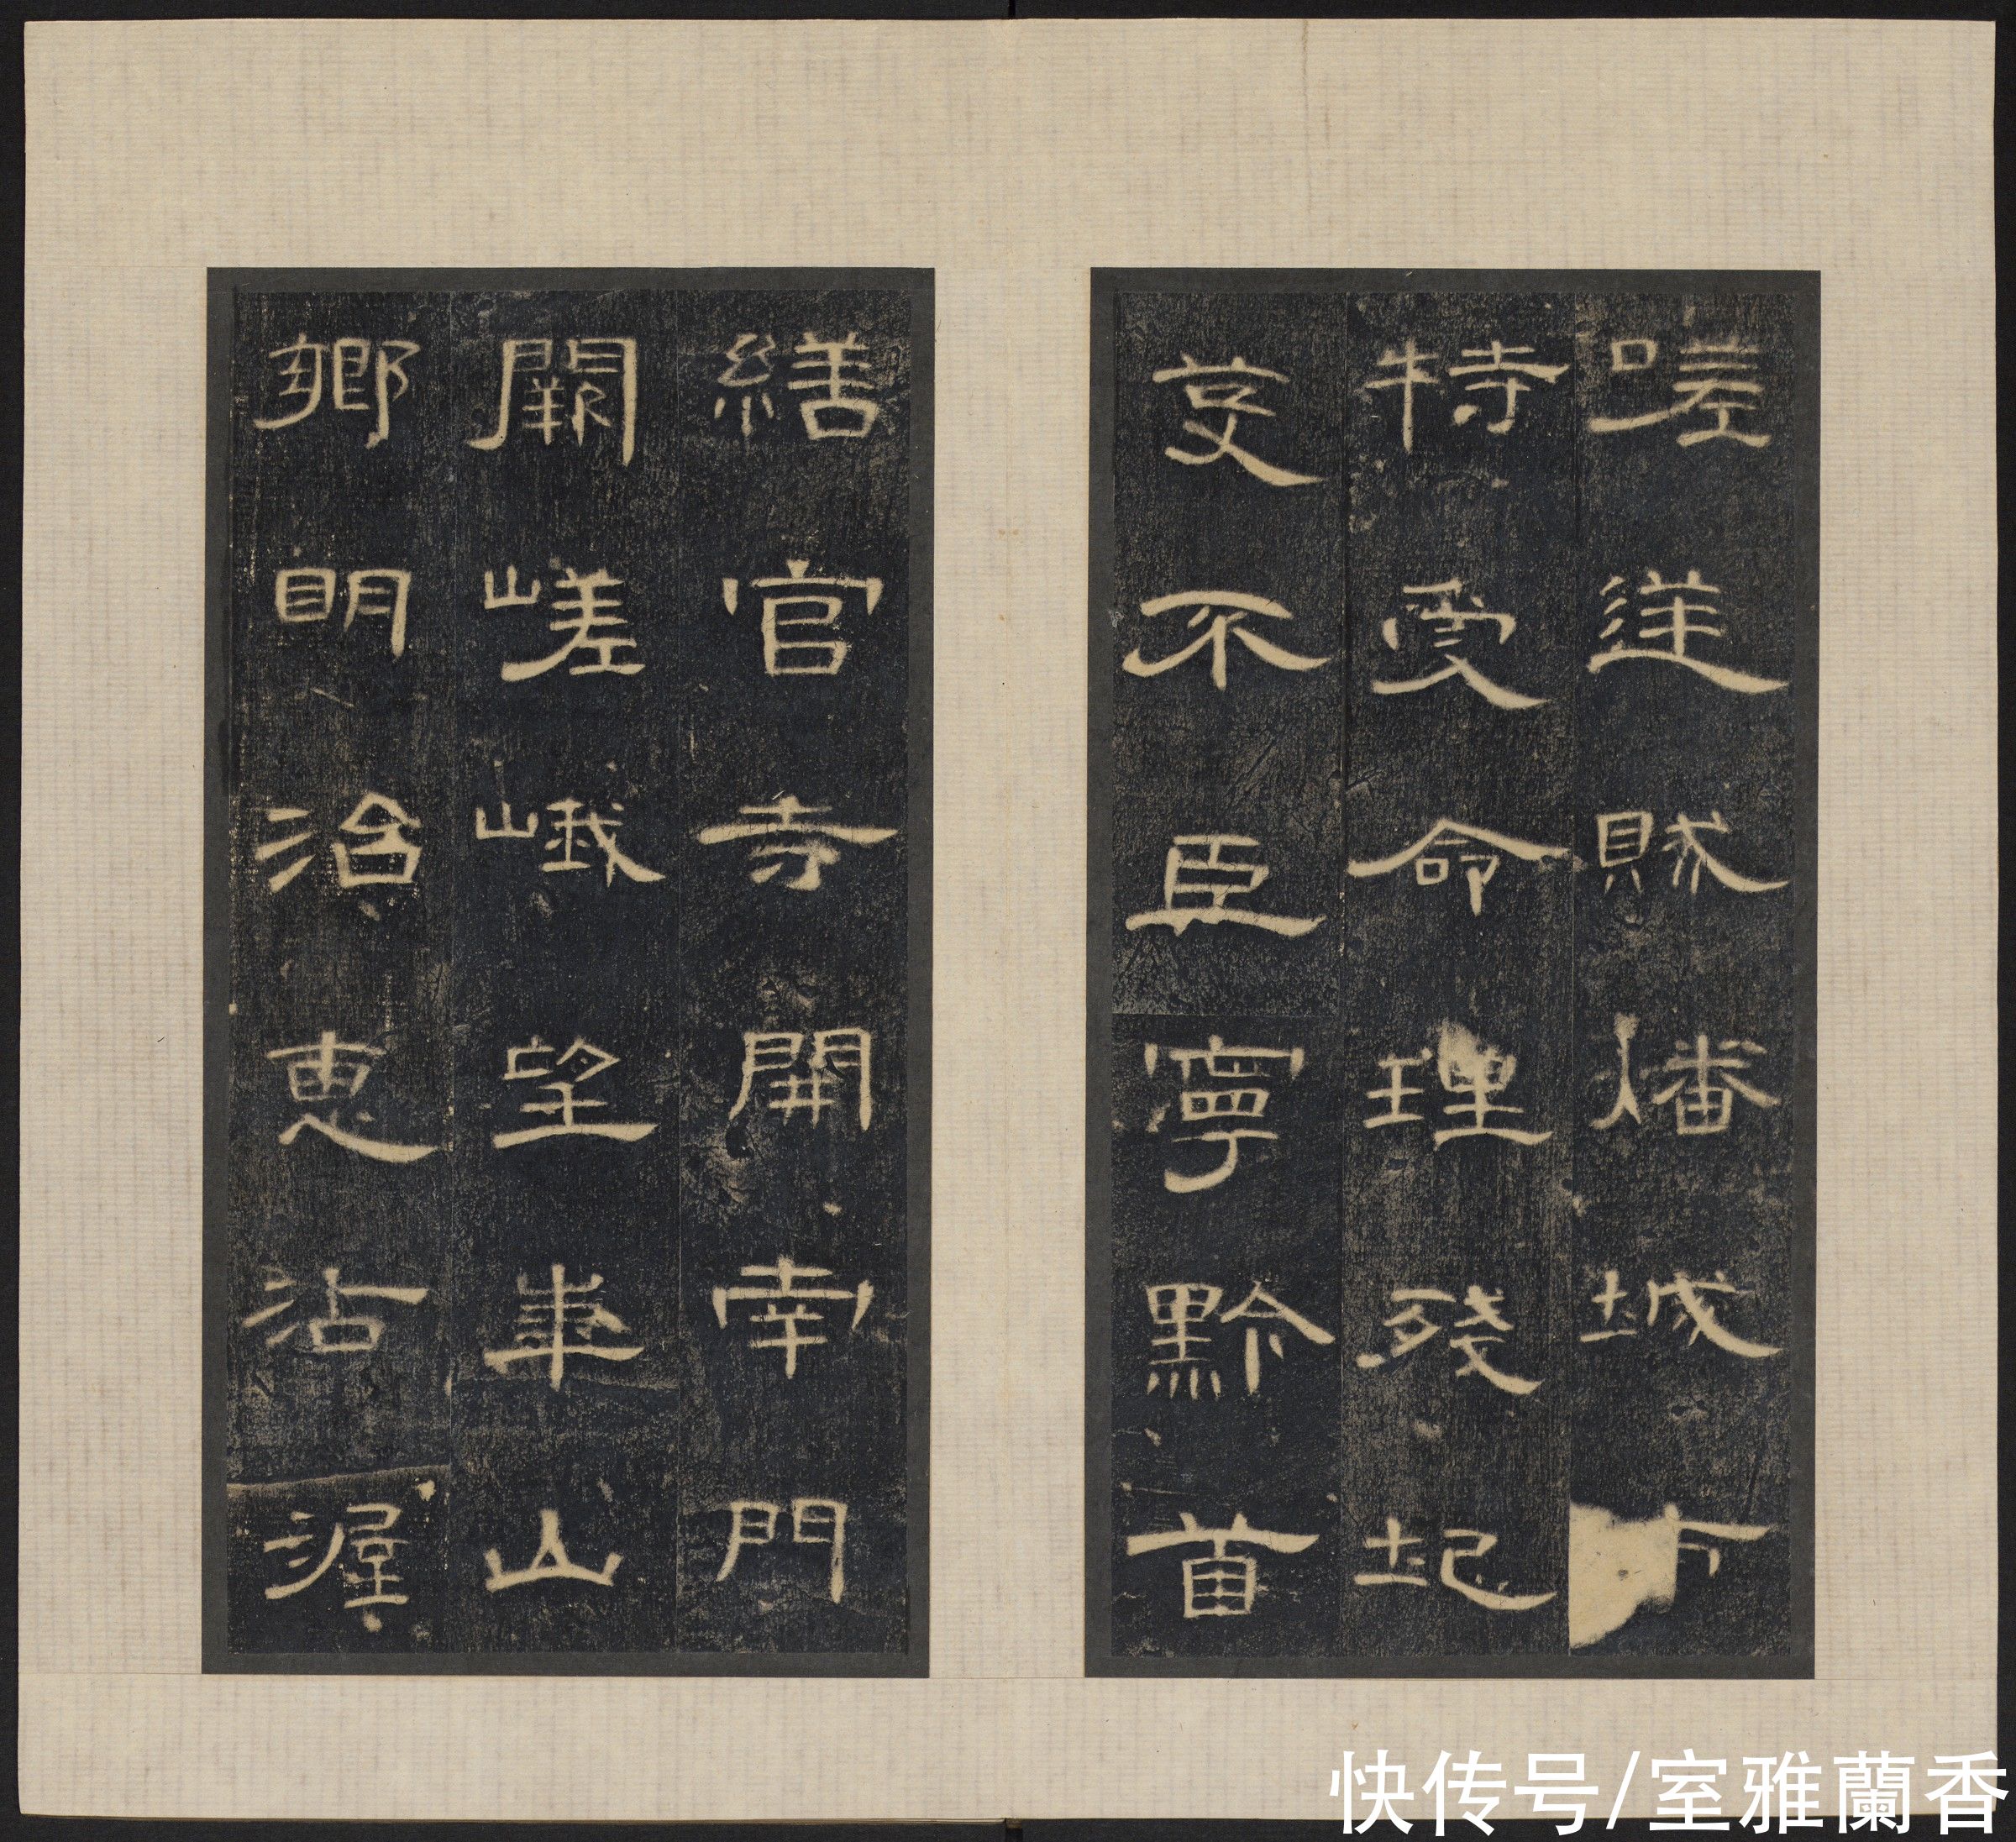 嗟逆賊燔城市
特受命理殘圮
芟不臣寧黔首
繕官寺開南門
闕嵯峨望華山
鄉明治惠沾渥
快传号/室雅蘭香